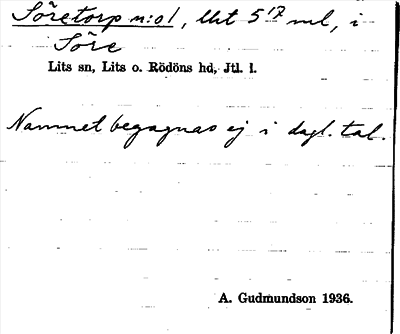 Söretorp n:o 1, 
Söre
Lits sn, Lits o. Rödöns hd, Jtl. l.
Namnet begagnas ej i dagl. tal.
A. Gudmundson 1936.